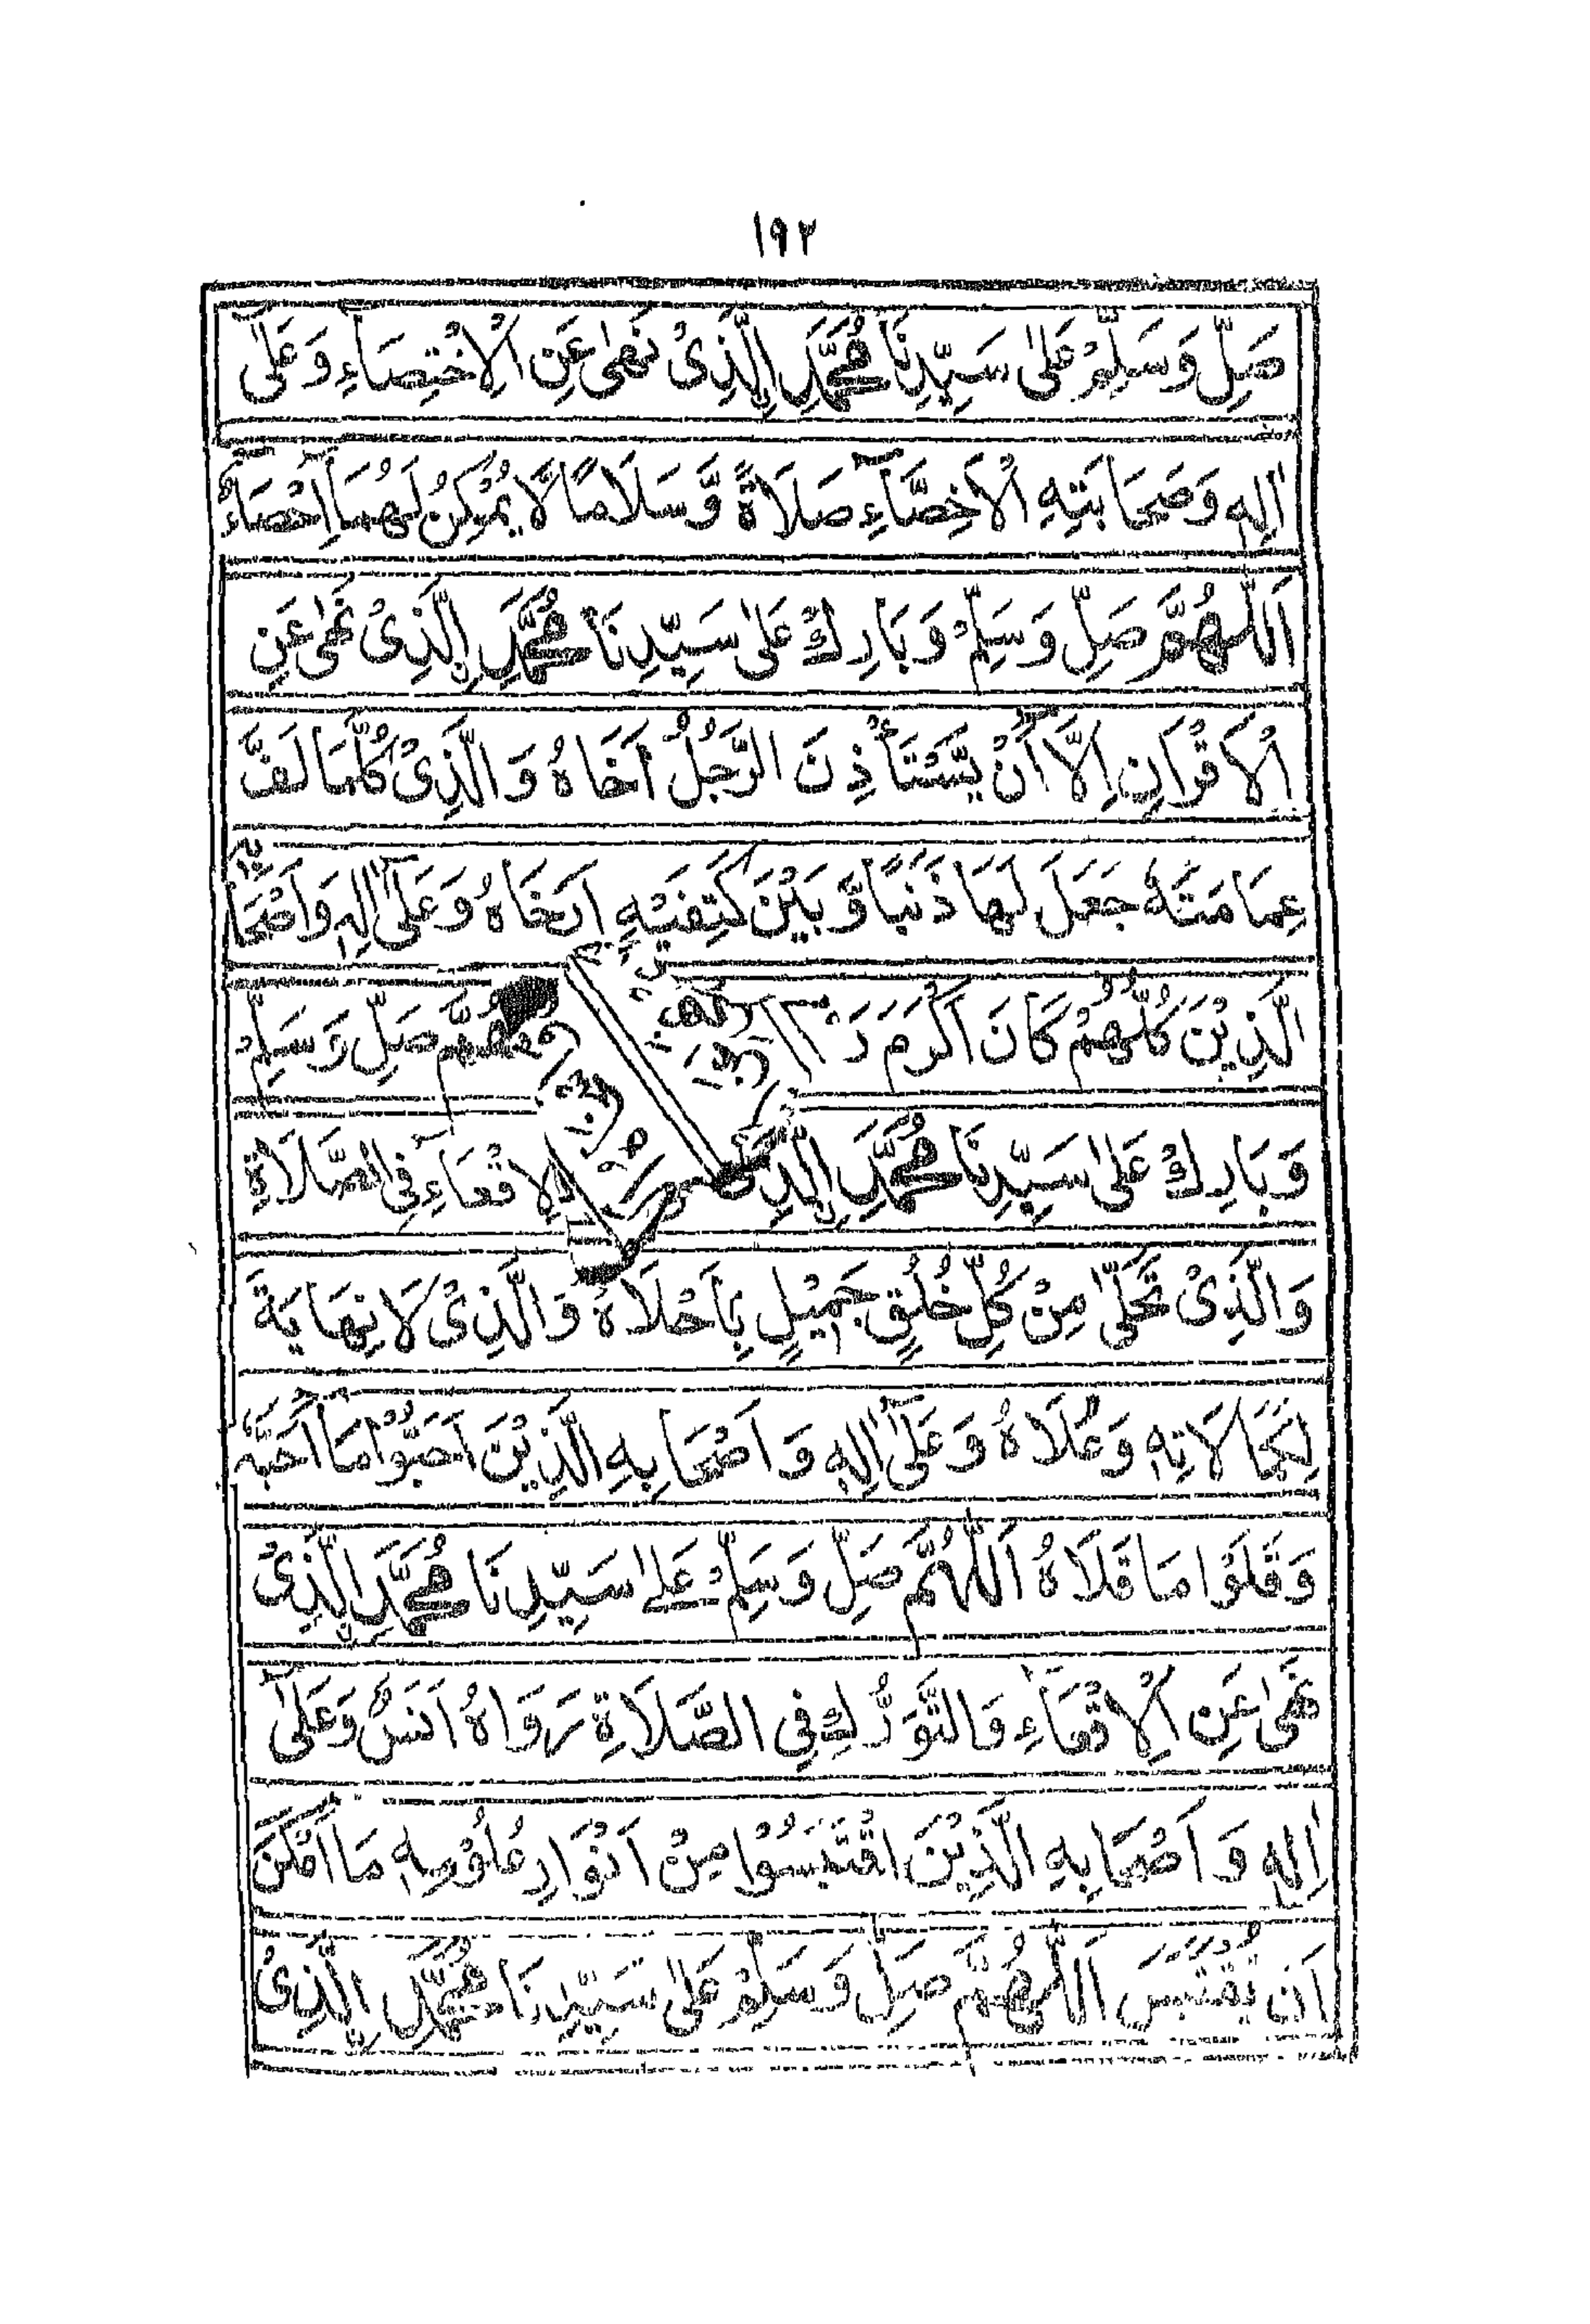 ١٩٢
صَلِّ وَسَلِّمْ عَلٰى سَيِّدِنَا مُحَمَّدِ اِلَّذِىْ نَهٰى عَنِ الْاِخْتِصَاءِ وَعَلٰى
اٰلِهٖ وَصَحَابَتِهِ الْاَخِصَّاءِ صَلَاةً وَّسَلَامًا لَّا يُمْكِنُ لَهُمَا اِحْصَاءٌ
اَللّٰهُمَّ صَلِّ وَسَلِّمْ وَبَارِكْ عَلٰى سَيِّدِنَا مُحَمَّدِ اِلَّذِىْ نَهٰى عَنِ
الْاَقْرَانِ اِلَّا اَنْ يَّسْتَأْذِنَ الرَّجُلُ اَخَاهُ وَالَّذِىْ كُلَّمَا لَفَّ
عِمَامَتَهٗ جَعَلَ لَهَا ذَنَبًا وَّبَيْنَ كَتِفَيْهِ اَرْخَاهُ وَعَلٰى اٰلِهٖ وَاَصْحَابِهِ
الَّذِيْنَ كُلُّهُمْ كَانَ اَكْرَمَ صَلِّ وَسَلِّمْ
وَبَارِكْ عَلٰى سَيِّدِنَا مُحَمَّدِ اِلَّذِىْ الْاِقْعَاءِ فِى الصَّلَاةِ
وَالَّذِىْ تَحَلّٰى مِنْ كُلِّ خُلُقٍ جَمِيْلٍ بِاَحْلَاهُ وَالَّذِىْ لَا نِهَايَةَ
لِكَمَالَاتِهٖ وَعُلَاهُ وَعَلٰى اٰلِهٖ وَاَصْحَابِهِ الَّذِيْنَ اَحَبُّوْا مَا اَحَبَّهٗ
وَقَلَوْا مَا قَلَاهُ اَللّٰهُمَّ صَلِّ وَسَلِّمْ عَلٰى سَيِّدِنَا مُحَمَّدِ اِلَّذِىْ
نَهٰى عَنِ الْاِقْعَاءِ وَالتَّوَرُّكِ فِى الصَّلَاةِ رَوَاهُ اَنَسٌ وَعَلٰى
اٰلِهٖ وَاَصْحَابِهِ الَّذِيْنَ اقْتَبَسُوْا مِنْ اَنْوَارِ عُلُوْمِهٖ مَا اَمْكَنَ
اَنْ يُقْتَبَسَ اَللّٰهُمَّ صَلِّ وَسَلِّمْ عَلٰى سَيِّدِنَا مُحَمَّدِ اِلَّذِىْ